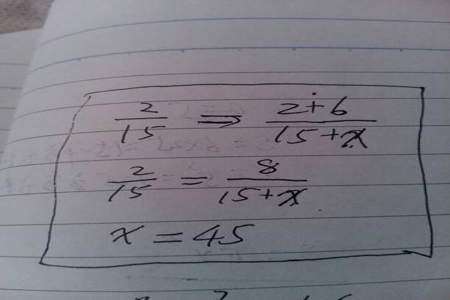 2/15 ⇒ 2+6/15+x
2/15 = 8/15+x
x = 45